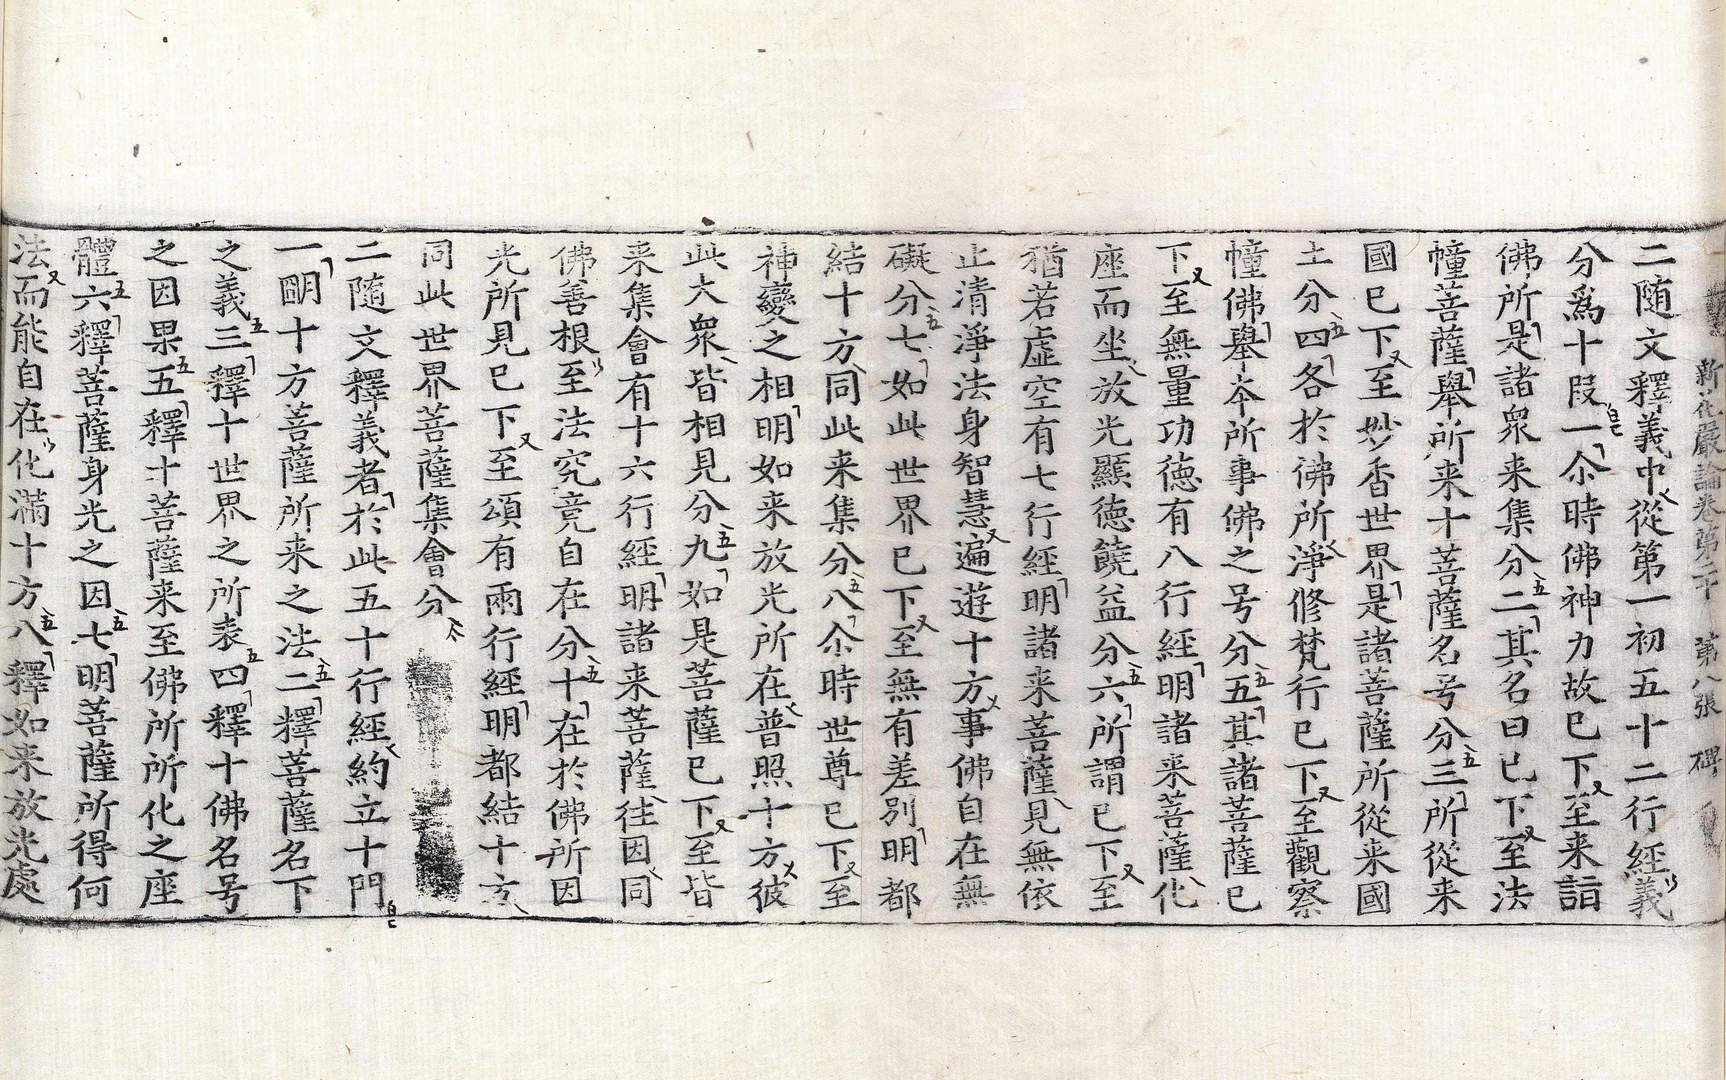 新花嚴論卷第二十 第八張 碑
二随文釋義中從第一初五十二行經義
分爲十段一尒時佛神力故已下至来詣
佛所是諸衆来集分二其名曰已下至法
幢菩薩舉所来十菩薩名号分三所從来
國已下至妙香世界是諸菩薩所從来國
土分四各於佛所淨修梵行已下至觀察
幢佛舉夲所事佛之号分五其諸菩薩已
下至無量功德有八行經明諸来菩薩化
座而坐放光顯德饒益分六所謂已下至
猶若虛空有七行經明諸来菩薩見無依
止清淨法身智慧遍遊十方事佛自在無
礙分七如此世界已下至無有差別明都
結十方同此来集分八尒時世尊已下至
神變之相明如来放光所在普照十方彼
此大衆皆相見分九如是菩薩已下至皆
来集會有十六行經明諸来菩薩往因同
佛善根至法究竟自在分十在於佛所因
光所見已下至頌有兩行經明都結十方
同此世界菩薩集會分
二随文釋義者於此五十行經約立十門
一明十方菩薩所来之法二釋菩薩名下
之義三釋十世界之所表四釋十佛名号
之因果五釋十菩薩来至佛所所化之座
體六釋菩薩身光之因七明菩薩所得何
法而能自在化滿十方八釋如来放光處